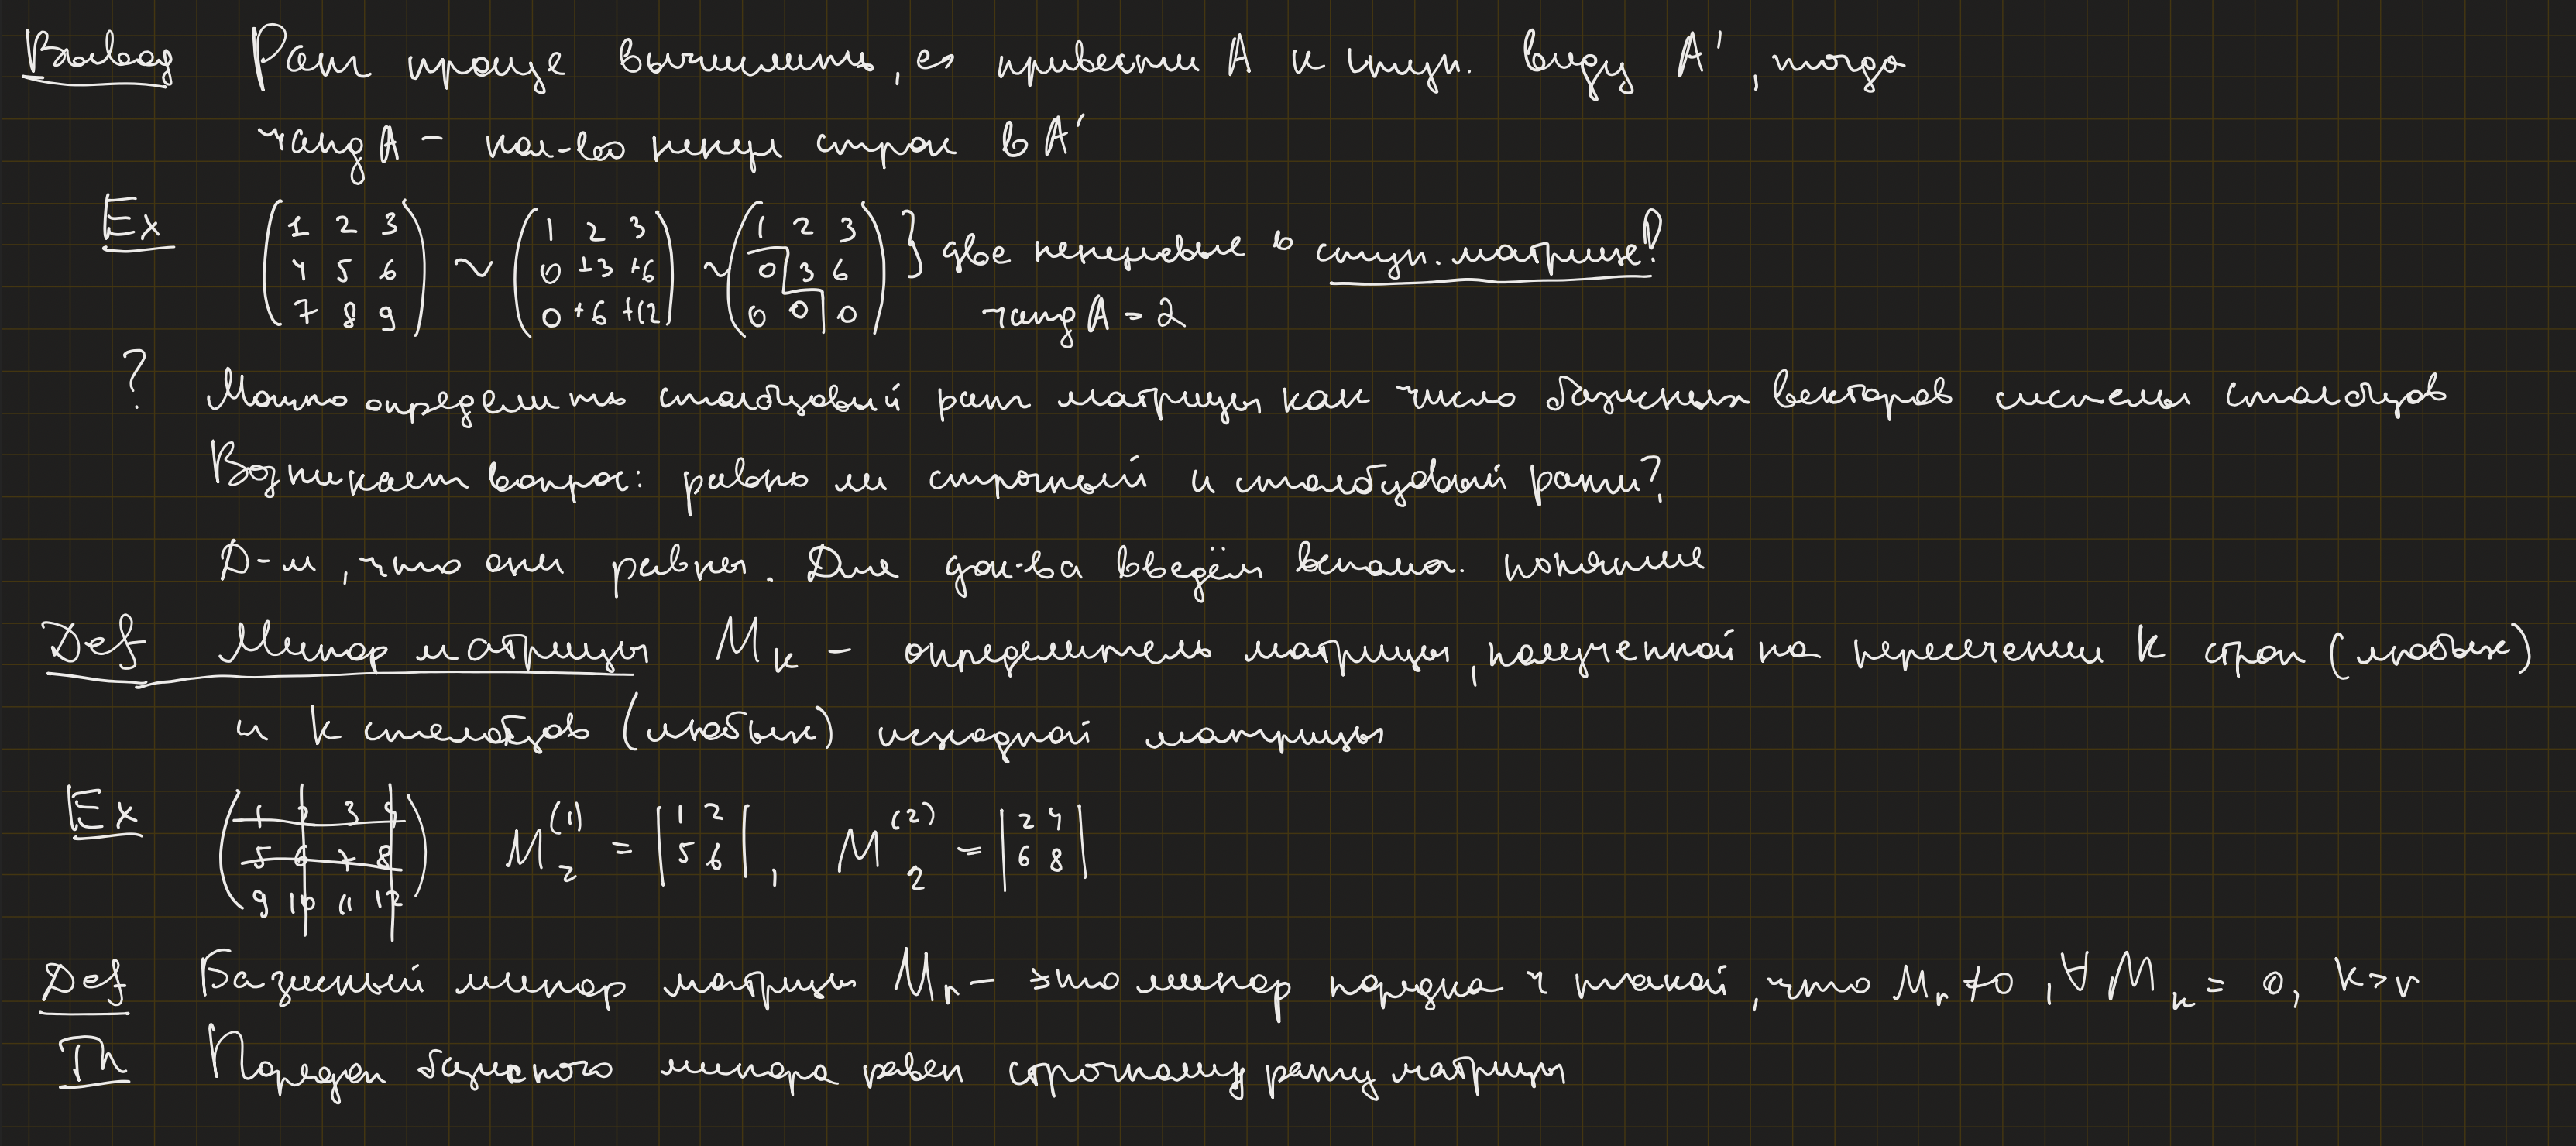 Вывод Ранг проще вычислить, если привести A к ступ. виду A', тогда
rang A - кол-во ненул строк в A'
Ex (1 2 3 / 4 5 6 / 7 8 9) ~ (1 2 3 / 0 +3 +6 / 0 +6 +12) ~ (1 2 3 / 0 3 6 / 0 0 0) } две ненулевые в ступ. матрице!
rang A = 2
? Можно определить столбцовый ранг матрицы как число базисных векторов системы столбцов
Возникает вопрос: равны ли строчный и столбцовый ранги?
Д-м, что они равны. Для док-ва введём вспом. понятие
Def Минор матрицы M_k - определитель матрицы, полученной на пересечении k строк (любых)
и k столбцов (любых) исходной матрицы
Ex (1 2 3 4 / 5 6 7 8 / 9 10 11 12) M_2^(1) = |1 2 / 5 6|, M_2^(2) = |2 4 / 6 8|
Def Базисный минор матрицы M_r - это минор порядка r такой, что M_r ≠ 0, ∀ M_k = 0, k > r
Th Порядок базисного минора равен строчному рангу матрицы